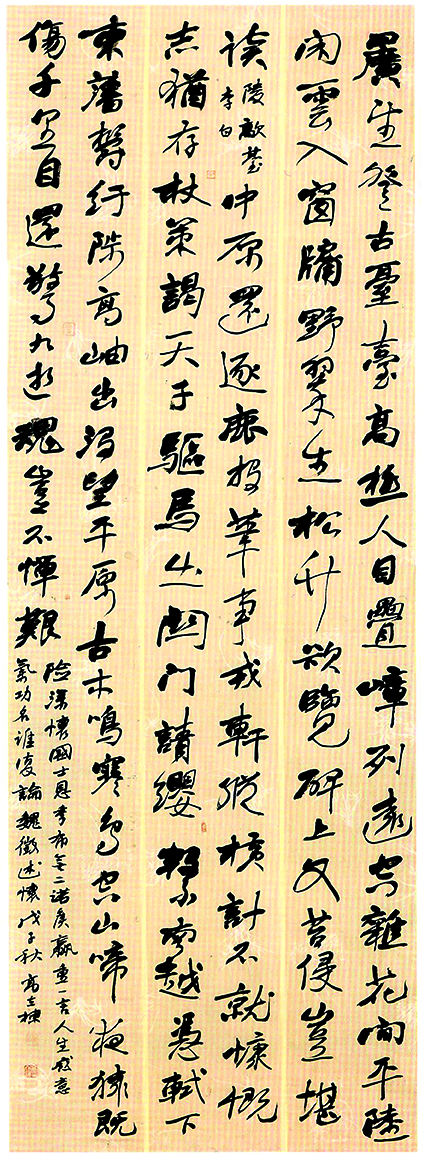 曠望登古臺臺高極人目疊嶂列遠空雜花間平陸
閑雲入窗牖野翠生松竹欲覽碑上文苔侵豈堪
讀
陵歊臺
李白
中原還逐鹿投筆事戎軒縱橫計不就慷慨
志猶存杖策謁天子驅馬出關門請纓繫南越憑軾下
東藩鬱紆陟高岫出沒望平原古木鳴寒鳥空山啼夜猿既
傷千里目還驚九逝魂豈不憚艱
險深懷國士恩季布無二諾侯嬴重一言人生感意
氣功名誰復論魏徵述懷戊子秋高立棟